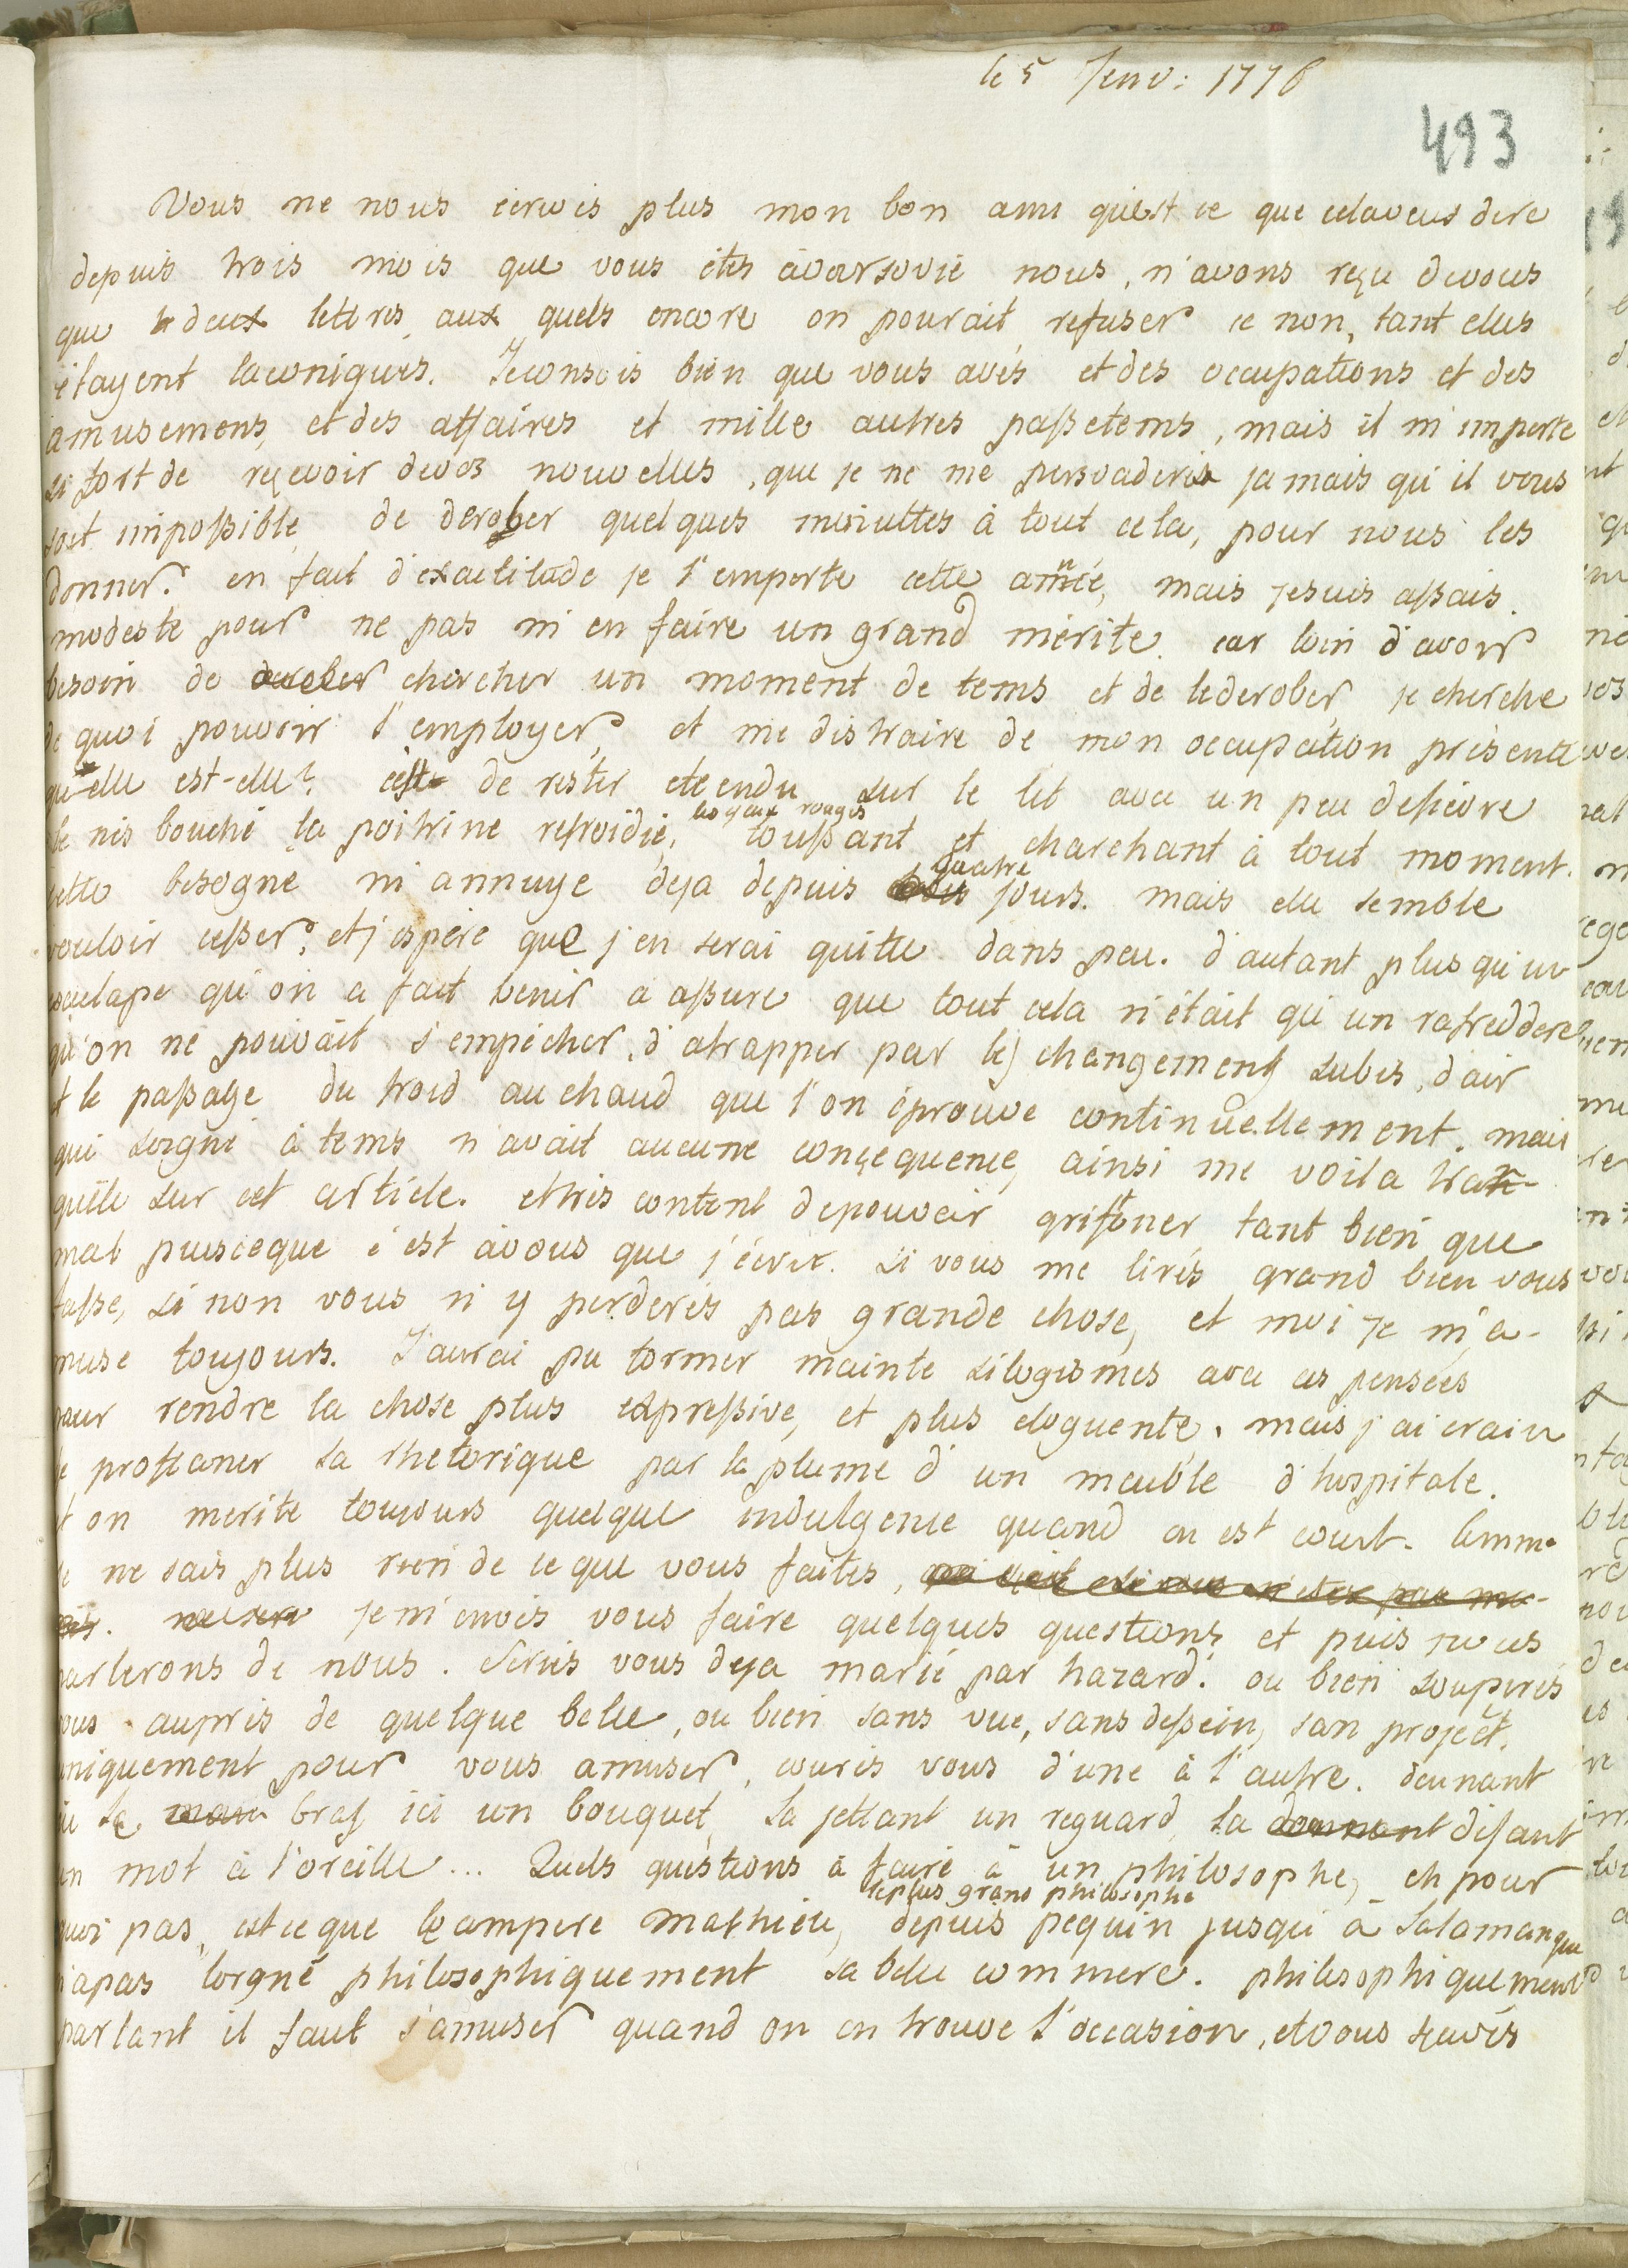 le 5 Jenv: 1776
493
Vous ne nous ecrivés plus mon bon ami qu'est ce que cela veus dire
depuis trois mois que vous étes àvarsovie nous, n'avons reçu devous
que deux lettres aux quels encore on pourait refuser ce non, tant elles
étayent laconiques. Jeconsois bien que vous avés et des occupations et des
amusemens, et des affaires et mille autres passetems, mais il m'importe
si fort de reçevoir devos nouvelles, que je ne me persvaderai jamais qu'il vous
soit impossible de derober quelques minuttes à tout cela, pour nous les
donner. en fait d'exactitude je l'emporte cette année, mais jesuis assais.
modeste pour ne pas m'en faire un grand mérite. car loin d'avoir
besoin de chercher un moment de tems et de lederober, je cherche
de quoi pouvoir l'employer, et me distraire de mon occupation présente
qu'elle est-elle? c'est de rester eteendu sur le lit avec un peu defiévre
le nés bouché la poitrine refroidie, les yeux rouges toussant et charchant à tout moment.
cette besogne m'annuye deja depuis quatre jours. mais elle semble
vouloir cesser, et j'espére que j'en serai quitte dans peu. d'autant plus qu'un
esculape qu'on a fait venir a assuré que tout cela n'était qu'un rafreddore
qu'on ne pouvait s'empécher, d'atrapper par les changemens subis, d'air
et le passage du froid au chaud que l'on éprouve continuellement. mais
qui soigné à tems n'avait aucune conçequence, ainsi me voila tran-
quile sur cet article. et trés content depouvoir griffoner tant bien que
mal pusceque c'est àvous que j'écris. si vous me lirés grand bien vous
fasse, si non vous n'y perderés pas grande chose, et moi je m'a-
muse toujours. J'aurai pu former mainte silogismes avec ces pensées
pour rendre la chose plus expressive, et plus eloquente. mais j'ai crain
de proffaner la rhetorique par la plume d'un meuble d'hospitale.
et on merite toujours quelque indulgence quand on est court. Comme
je ne sais plus rien de ce que vous faites,
je m'envois vous faire quelques questions et puis nous
parlerons de nous. Seriés vous deja marié par hazard. ou bien soupirés
vous auprés de quelque belle, ou bien sans vue, sans dessein, san project.
uniquement pour vous amuser, courés vous d'une à l'autre. donnant
ici le bras ici un bouquet, la jettant un reguard, la disant
un mot à l'oreille... Quels questions à faire à un philosophe, eh pour
quoi pas, est ce que le compere Mathieu, le plus grand philosophe depuis pequin jusqu'à Salamanque
n'apas lorgné philosophiquement sa belle commere. philosophiquement
parlant il faut s'amuser quand on en trouve l'occasion, et vous sçavés